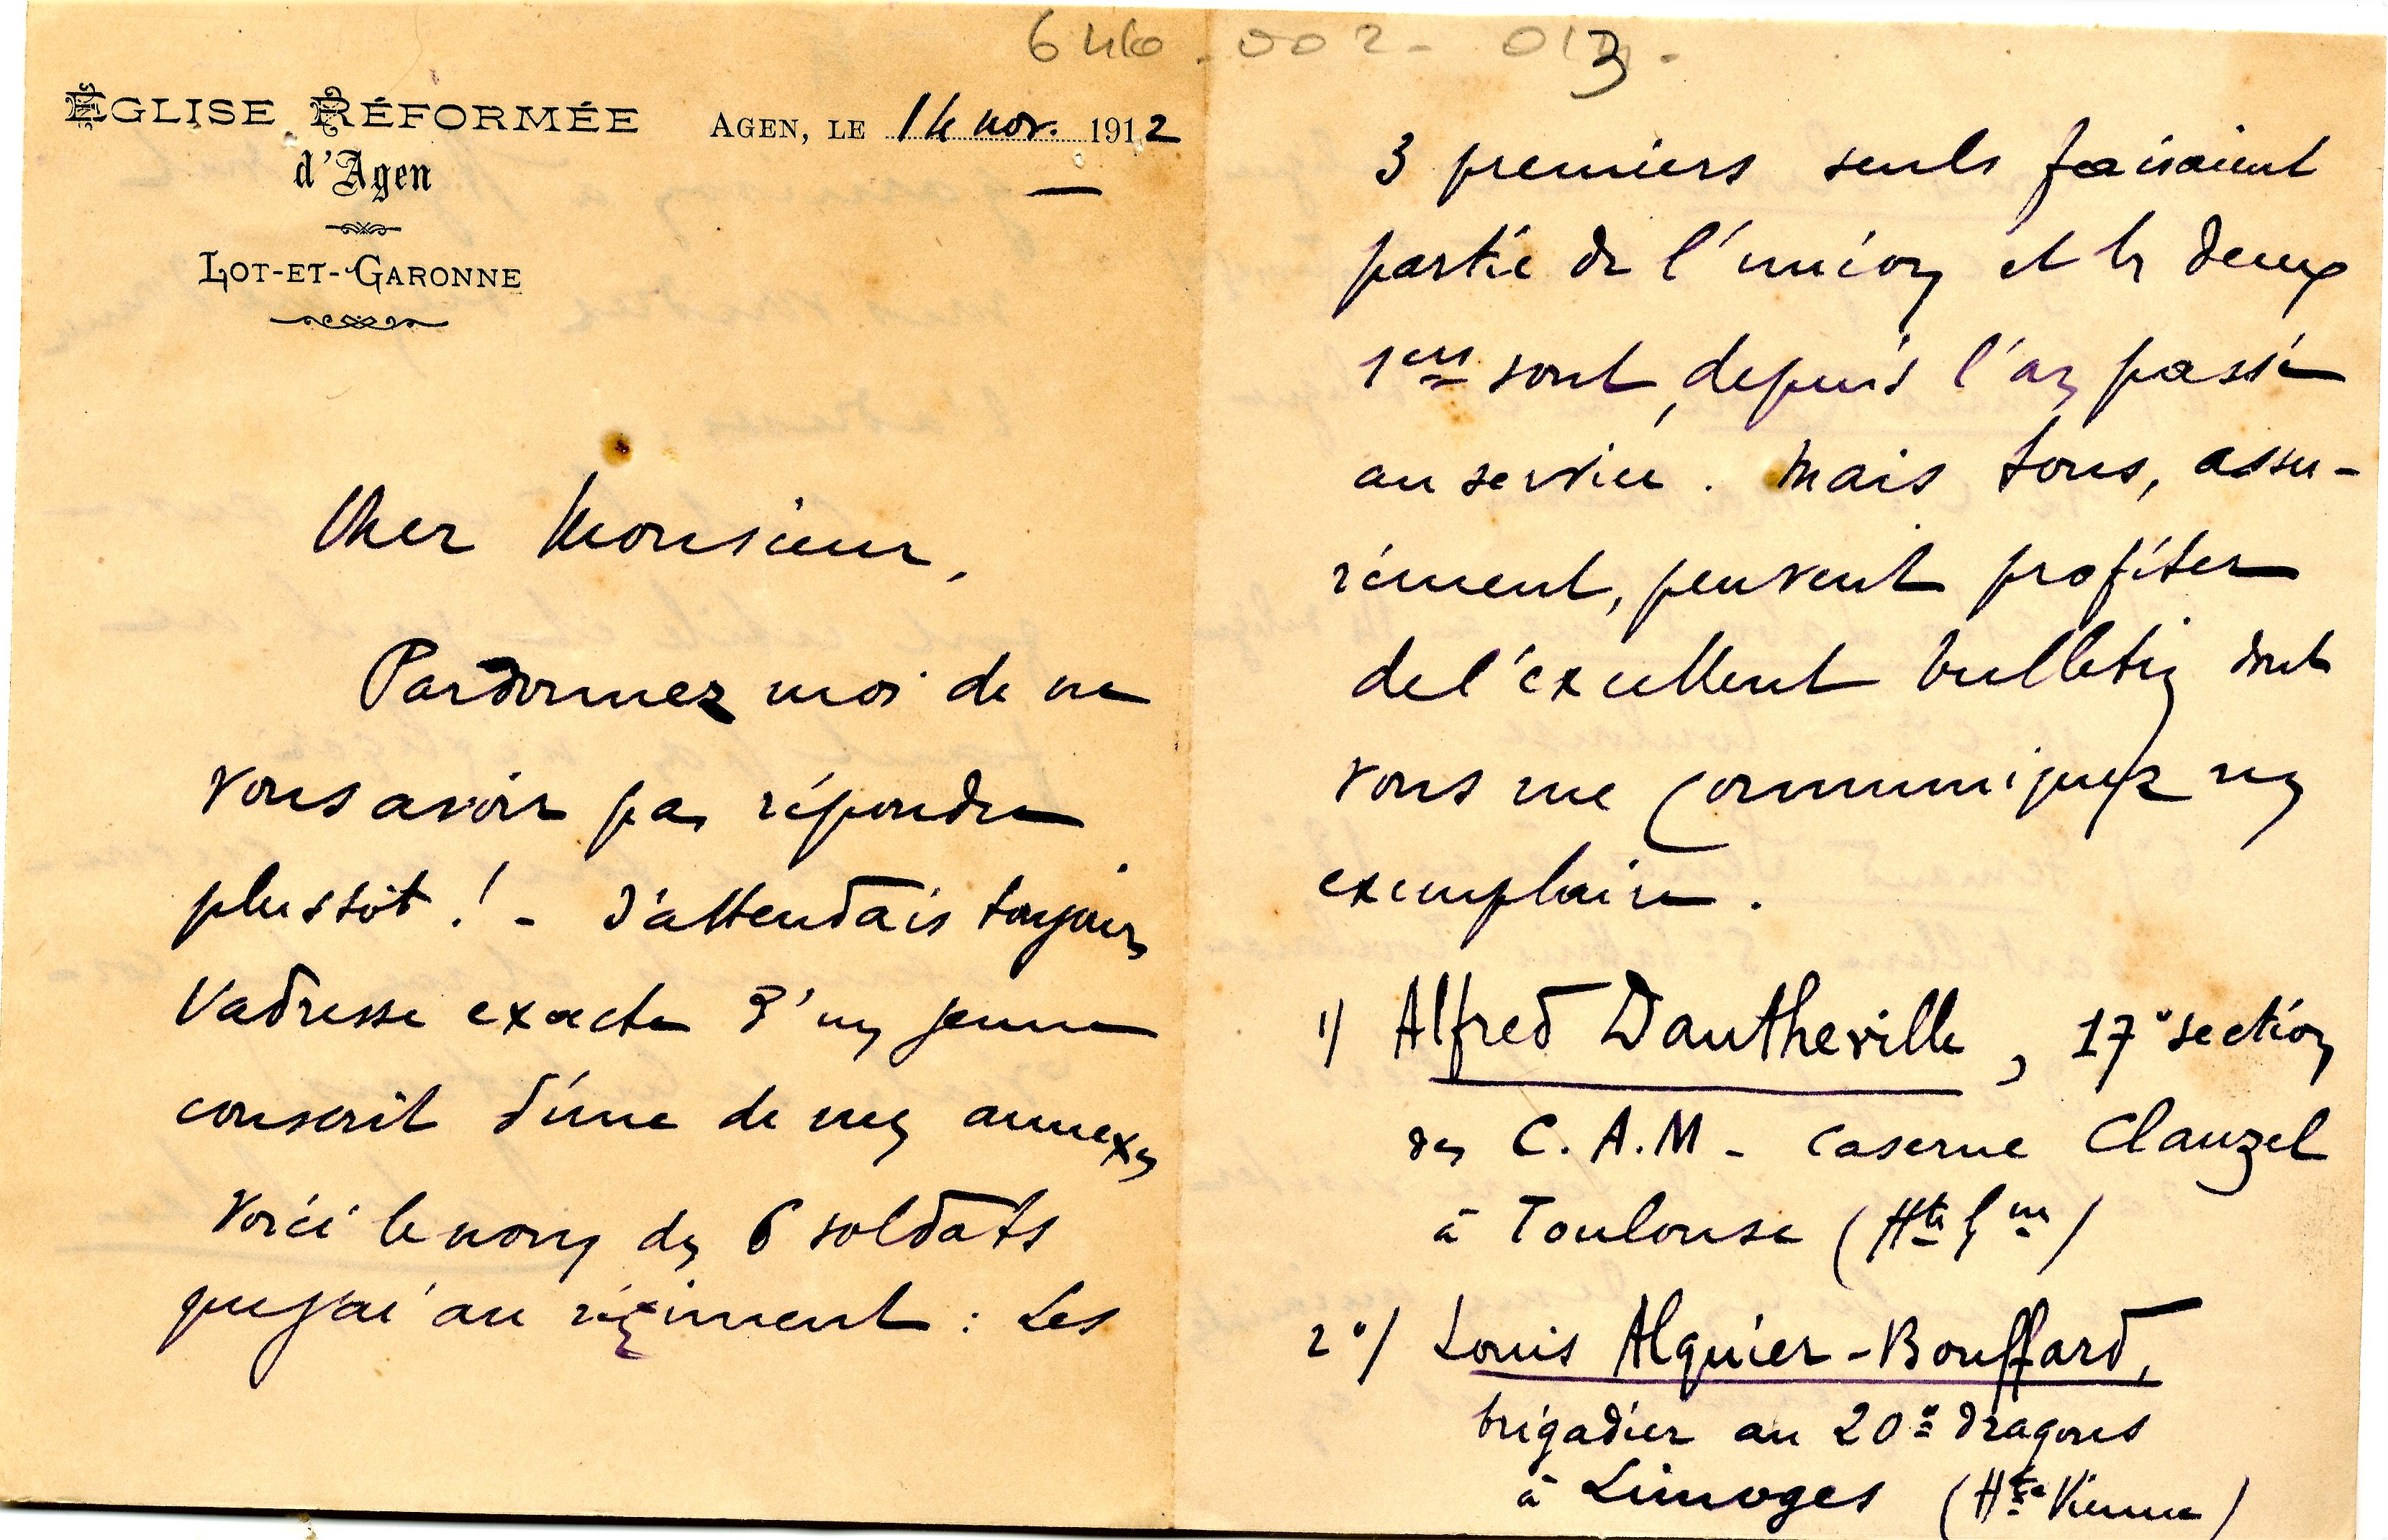 646.002-013-
ÉGLISE RÉFORMÉE
d'Agen
LOT-ET-GARONNE
AGEN, LE 14 nov. 1912
Cher Monsieur,
Pardonnez moi de ne
vous avoir pas répondu
plus tôt ! - J'attendais toujours
l'adresse exacte d'un jeune
conscrit d'une de mes annexes
Voici le nom des 6 soldats
que j'ai au régiment : Les
3 premiers seuls faisaient
partie de l'union et les deux
1ers sont, depuis l'an passé
au service. Mais tous, assu-
rément, peuvent profiter
de l'excellent bulletin dont
vous me communiquez un
exemplaire.
1) Alfred Dautheville, 17e section
des C.A.M - caserne Clauzel
à Toulouse (Hte Gne)
2°/ Louis Alquier-Bouffard,
brigadier au 20e dragons
à Limoges (Hte Vienne)